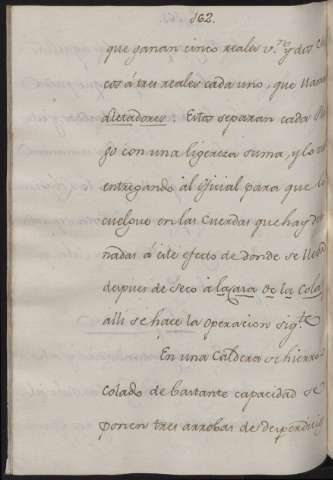 162.
que ganan cinco reales v.ⁿ y dos
cos á tres reales cada uno, que llaman
dictadores: Estos separan cada
go con una ligereza suma, y lo
entregando al oficial para que lo
cuelgue en las cuerdas que hay
nadas á este efecto de donde se lleba
despues de seco á la casa de la Cola,
alli se hace la operacion sig.te
En una Caldera de hierro
colado de bastante capacidad se
ponen tres arrobas de desperdicio